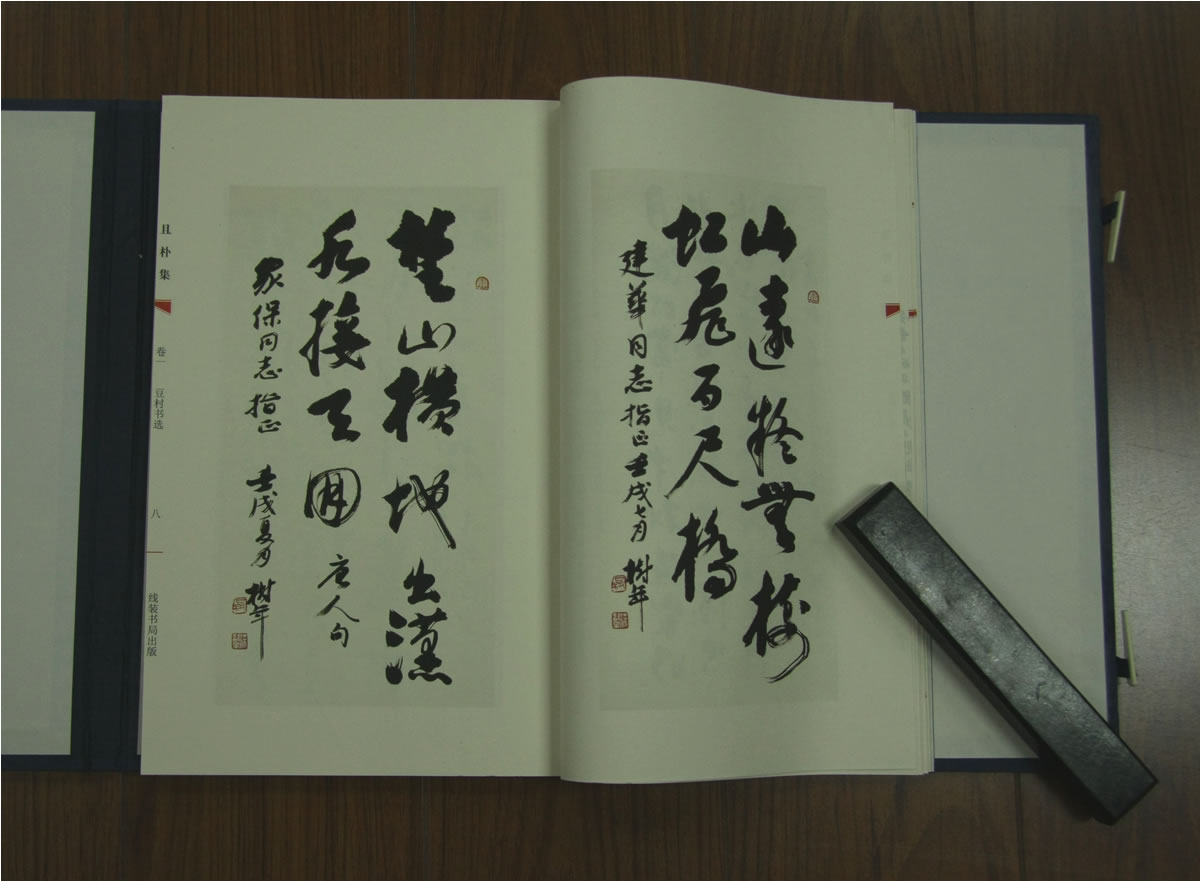 山遠疑無樹
虹飛百尺橋
建華同志指正壬戌七月 樹年
楚山横地出漢
水接天囬 唐人句
家保同志指正 壬戌夏月 樹年
且朴集 卷一 豆村书选 八 线装书局出版